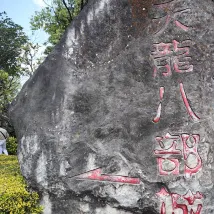 天龍八部